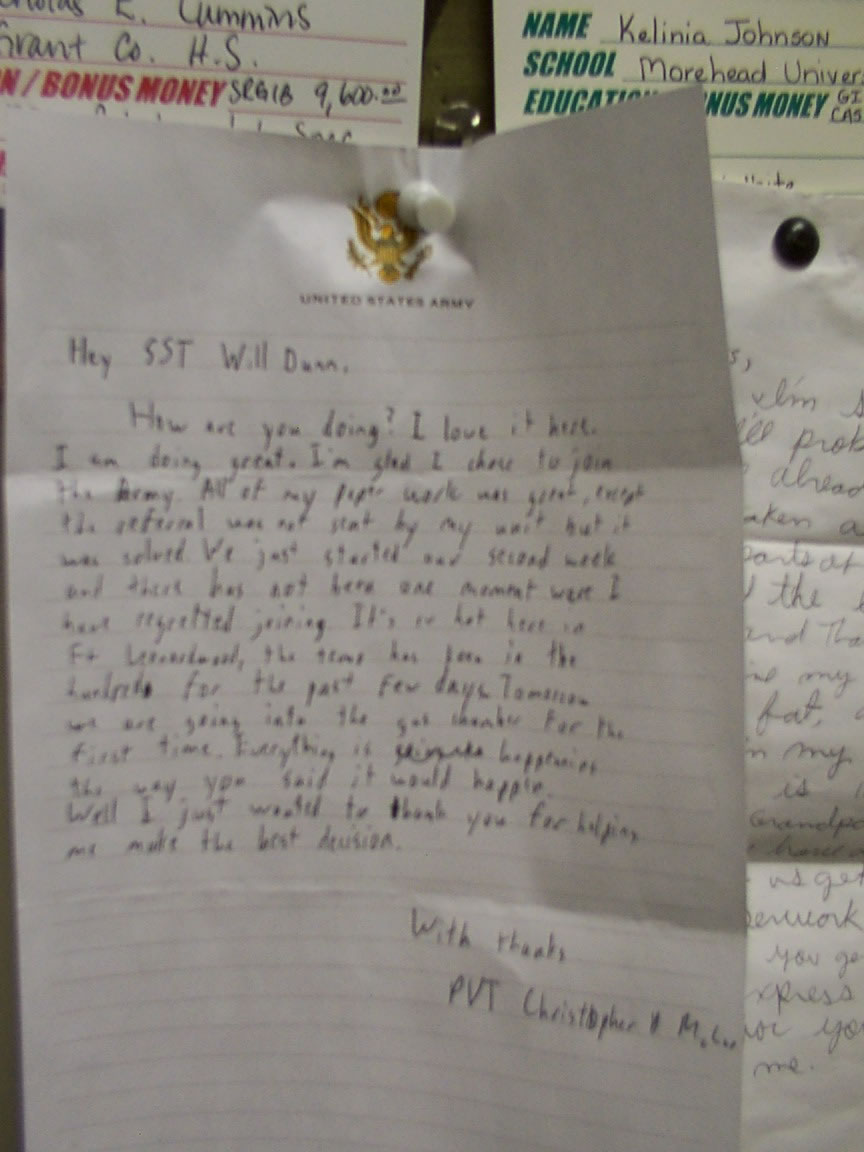 Cummins
Grant Co. H.S.
N / BONUS MONEY SRGIB 9,600.00
NAME Kelinia Johnson
SCHOOL Morehead Univer
EDUCATI NUS MONEY GI
CAS
UNITED STATES ARMY
Hey SST Will Dunn,
How are you doing? I love it here.
I am doing great. I'm glad I chose to join
the Army. All of my paper work was great, except
the referral was not sent by my unit but it
was solved We just started our second week
and there has not been one moment were I
have regretted joining. It's so hot here in
Ft Leonardwood, the temp has been in the
hundreds for the past few days. Tomorrow
we are going into the gas chamber for the
first time. Everything is happening
the way you said it would happin.
Well I just wanted to thank you for helping
me make the best decision.
With thanks
PVT Christopher
s,
I'm s
prob
alread
aken a
parts of
the
and Tha
my
fat,
in my
is
Grandpa
us get
perwork
you ge
xpress
for yo
me.